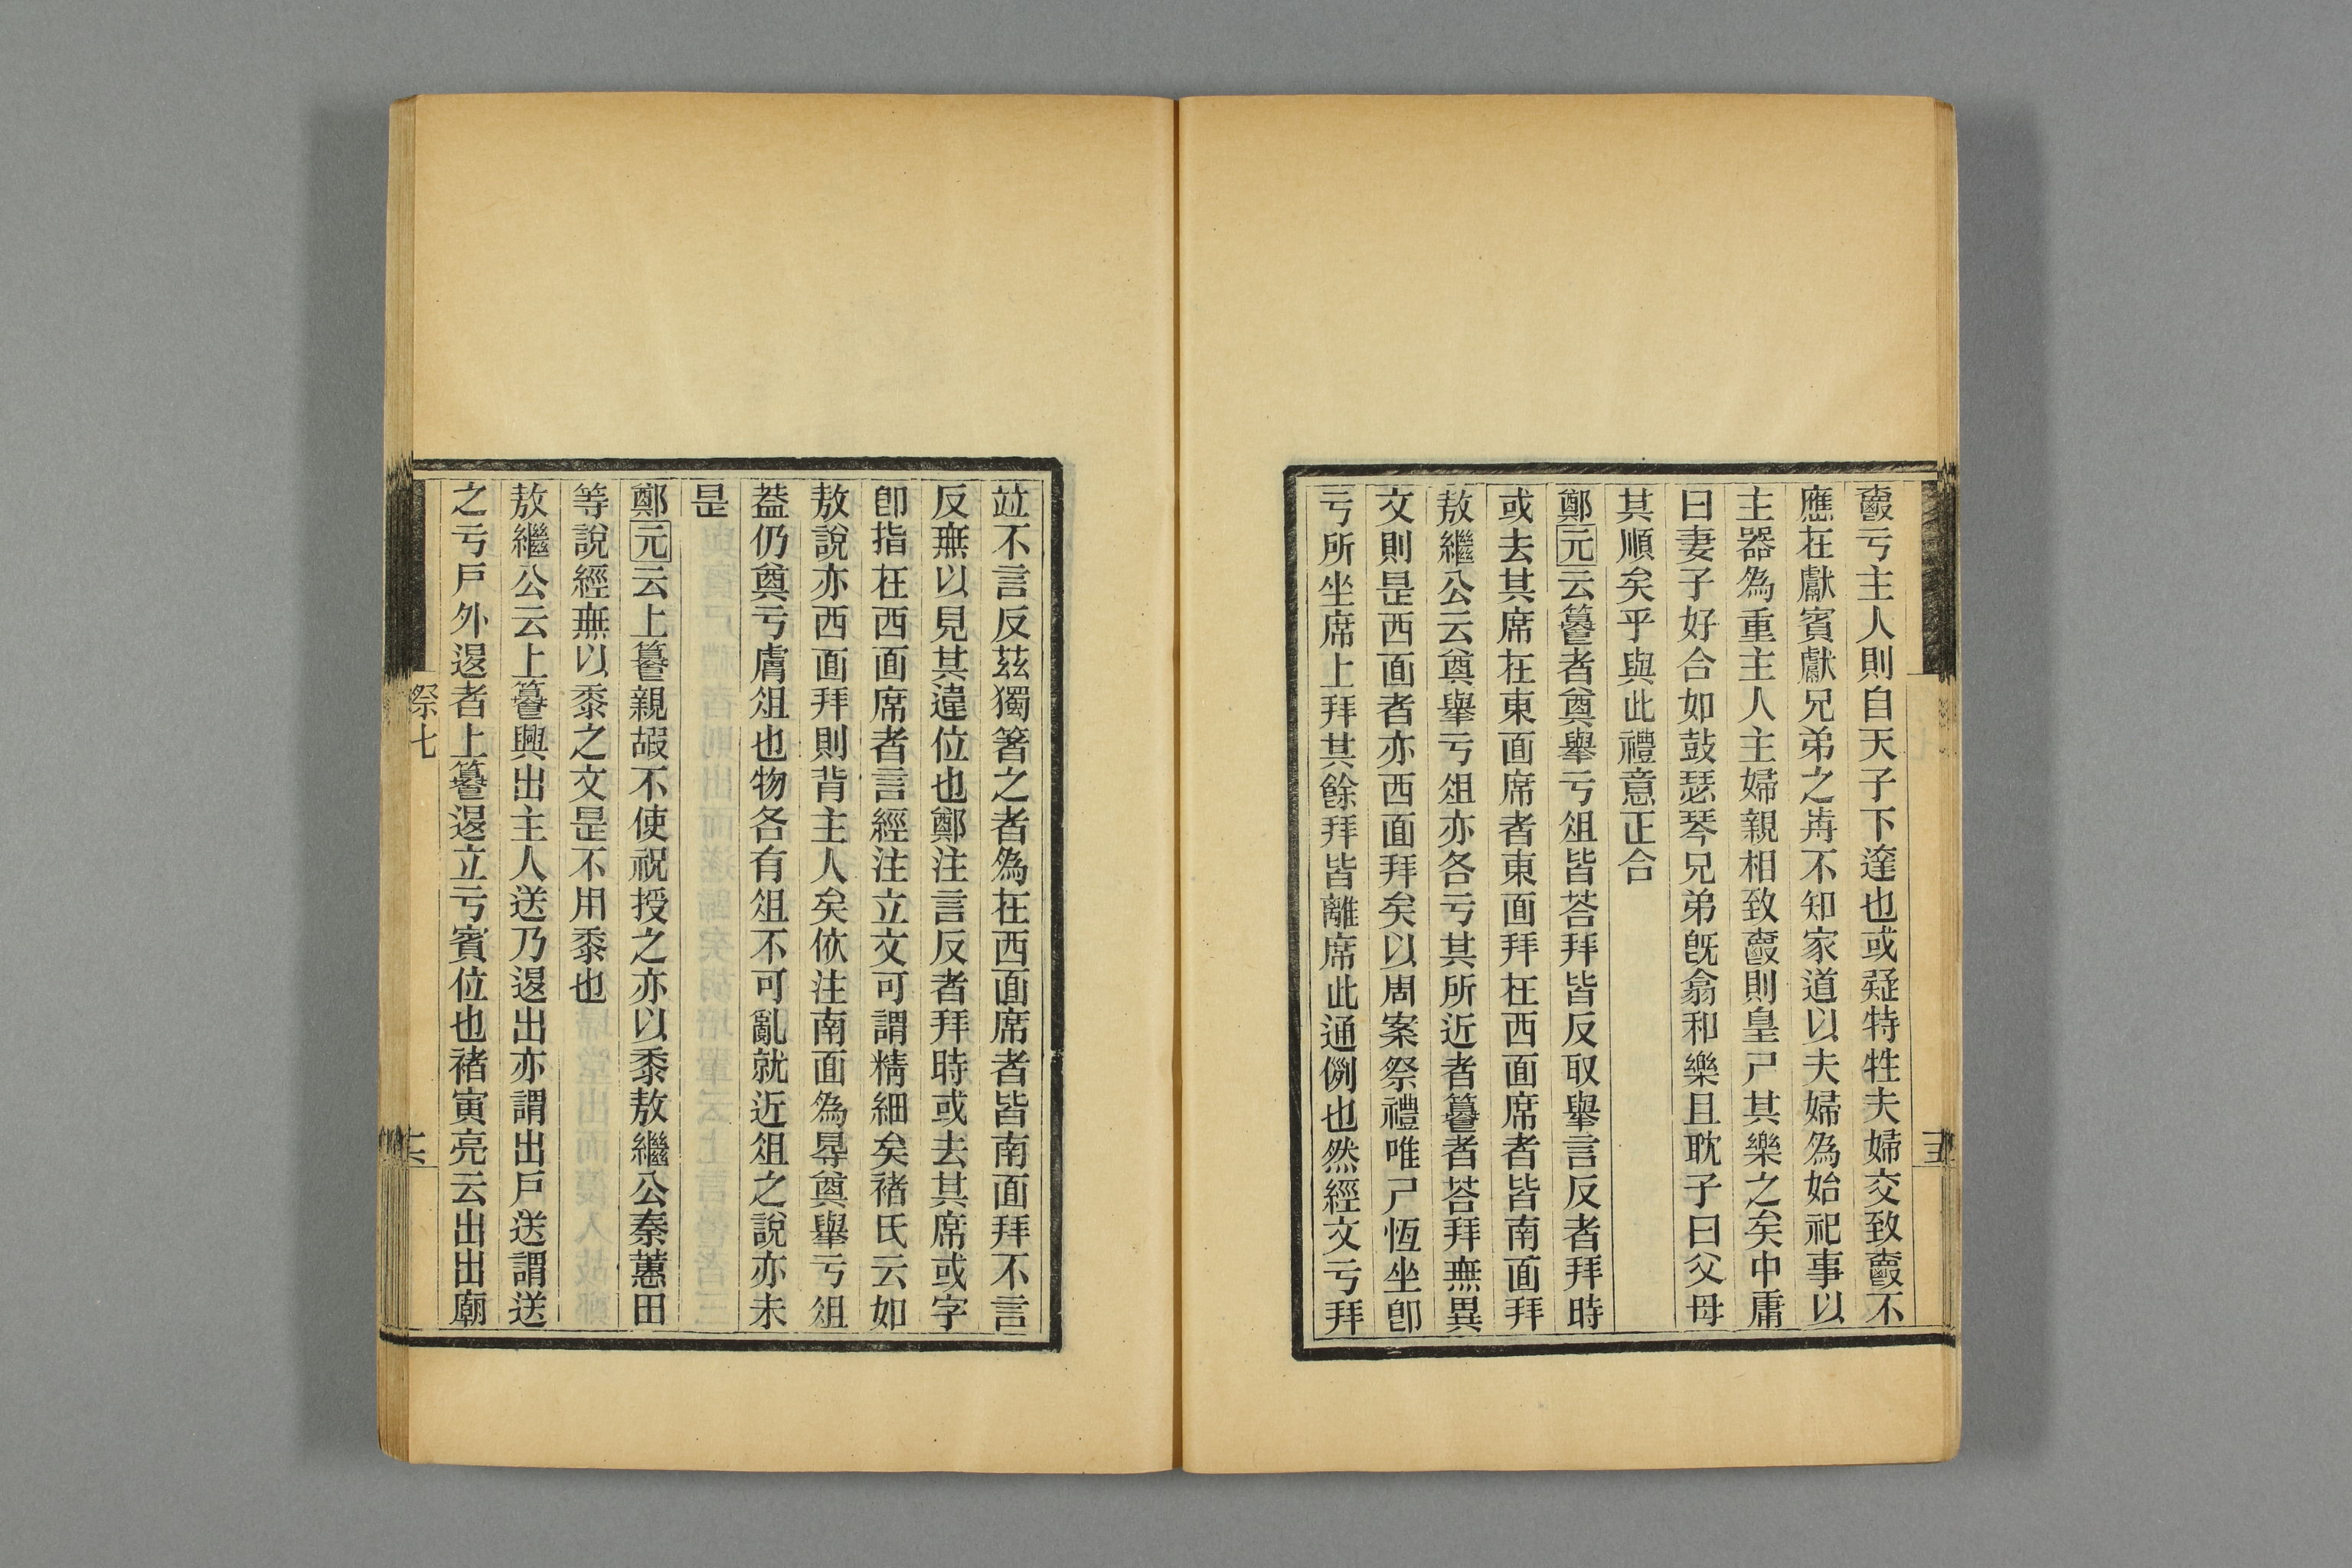 爵亏主人則自天子下達也或疑特牲夫婦交致爵不
應在獻賓獻兄弟之歬不知家道以夫婦爲始祀事以
主器爲重主人主婦親相致爵則皇尸其樂之矣中庸
曰妻子好合如鼓瑟琴兄弟旣翕和樂且耽子曰父母
其順矣乎與此禮意正合
鄭元云籑者奠舉亏俎皆荅拜皆反取舉言反者拜時
或去其席在東面席者東面拜在西面席者皆南面拜
敖繼公云奠舉亏俎亦各亏其所近者籑者荅拜無異
文則昰西面者亦西面拜矣以周案祭禮唯尸恆坐卽
亏所坐席上拜其餘拜皆離席此通例也然經文亏拜
竝不言反茲獨箸之者爲在西面席者皆南面拜不言
反無以見其違位也鄭注言反者拜時或去其席或字
卽指在西面席者言經注立文可謂精細矣褚氏云如
敖說亦西面拜則背主人矣依注南面爲㝵奠舉亏俎
葢仍奠亏膚俎也物各有俎不可亂就近俎之說亦未
昰
鄭元云上籑親嘏不使祝授之亦以黍敖繼公秦蕙田
等說經無以黍之文昰不用黍也
敖繼公云上籑興出主人送乃退出亦謂出戶送謂送
之亏戶外退者上籑退立亏賓位也褚寅亮云出出廟
祭七